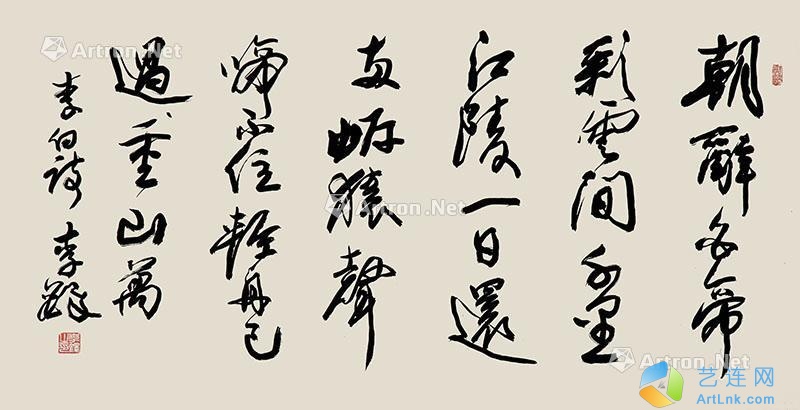 朝辭白帝
彩雲間千里
江陵一日還
兩岸猿聲
啼不住輕舟已
過重山萬
李白詩 李鐸
Artron.Net
Artron.Net
Artron.Net
Artron.Net
Artron.Net
艺连网
ArtLnk.com